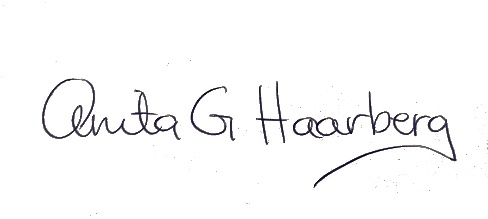 Anita G Haarberg